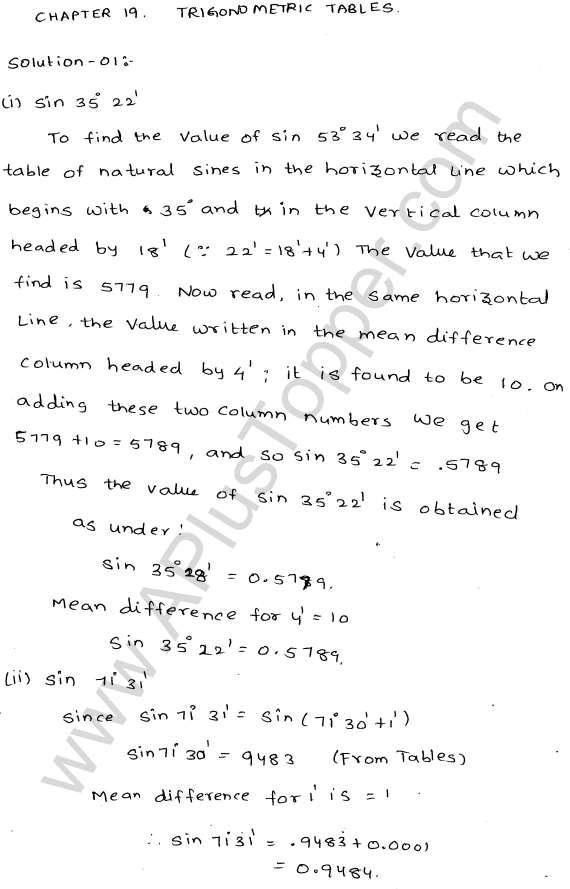 CHAPTER 19. TRIGONOMETRIC TABLES.
Solution-01:-
(i) Sin 35° 22'
To find the value of sin 53° 34' we read the
table of natural sines in the horizontal line which
begins with 35° and in the vertical column
headed by 18' (∵ 22' = 18'+4') The value that we
find is 5779. Now read, in the same horizontal
Line, the value written in the mean difference
column headed by 4'; it is found to be 10. on
adding these two column numbers we get
5779 +10 = 5789, and so sin 35° 22' = .5789
Thus the value of sin 35° 22' is obtained
as under:
Sin 35° 18' = 0.5779.
Mean difference for 4' = 10
Sin 35° 22' = 0.5789.
(ii) Sin 71° 31'
Since sin 71° 31' = Sin (71° 30' +1')
Sin 71° 30' = 9483 (From Tables)
Mean difference for 1' is = 1
∴ sin 71° 31' = .9483 + 0.0001
= 0.9484.
www.APlusTopper.com